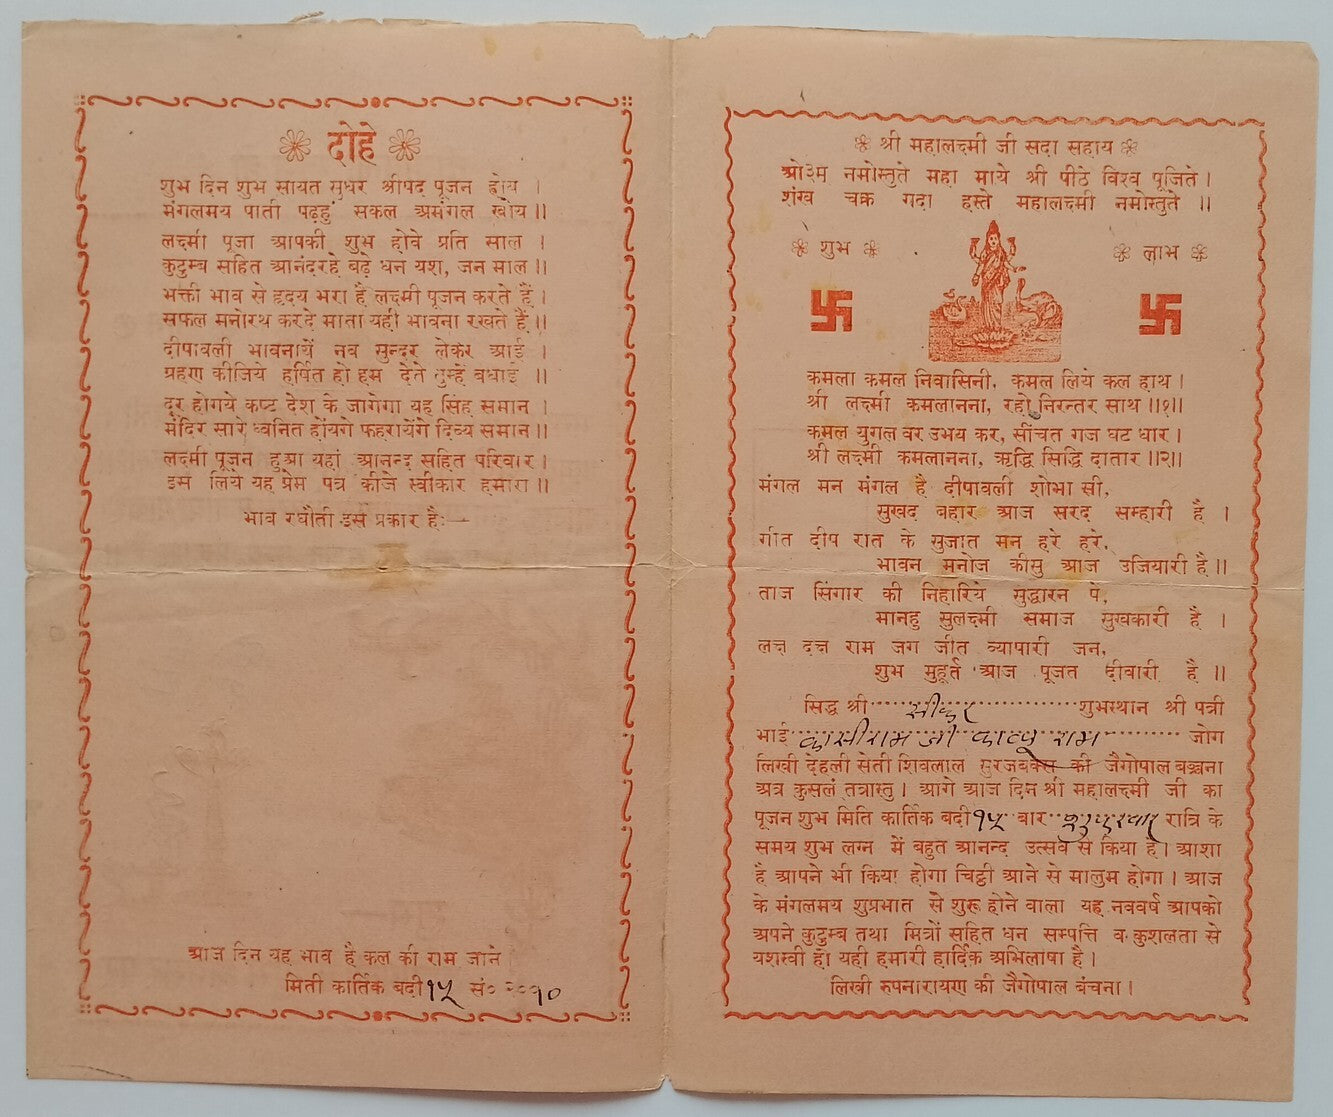 दोहे
शुभ दिन शुभ सायत सुधर श्रीपद पूजन होय ।
मंगलमय पाती पढ़हुं सकल अमंगल खोय ॥
लक्ष्मी पूजा आपकी शुभ होवे प्रति साल ।
कुटुम्ब सहित आनंदरहे बढ़े धन यश, जन माल ॥
भक्ती भाव से हृदय भरा है लक्ष्मी पूजन करते हैं ।
सफल मनोरथ करदे माता यही भावना रखते हैं ॥
दीपावली भावनायें नव सुन्दर लेकर आई ।
ग्रहण कीजिये हर्षित हो हम देते तुम्हें बधाई ॥
दूर होगये कष्ट देश के जागेगा यह सिंह समान ।
मंदिर सारे ध्वनित होंयगे फहरायेंगे दिव्य समान ॥
लक्ष्मी पूजन हुआ यहां आनन्द सहित परिवार ।
इस लिये यह प्रेम पत्र कीजे स्वीकार हमारा ॥
भाव रघौती इस प्रकार है:—
आज दिन यह भाव है कल की राम जाने
मिती कार्तिक बदी १५ सं० २०१०
श्री महालक्ष्मी जी सदा सहाय
ओ३म नमोस्तुते महा माये श्री पीठे विश्व पूजिते ।
शंख चक्र गदा हस्ते महालक्ष्मी नमोस्तुते ॥
शुभ लाभ
कमला कमल निवासिनी, कमल लिये कल हाथ ।
श्री लक्ष्मी कमलानना, रहो निरन्तर साथ ॥१॥
कमल युगल वर उभय कर, सींचत गज घट धार ।
श्री लक्ष्मी कमलानना, ऋद्धि सिद्धि दातार ॥२॥
मंगल मन मंगल है दीपावली शोभा सी,
सुखद बहार आज सरद सम्हारी है ।
गीत दीप रात के सुजात मन हरे हरे,
भावन मनोज कीसु आज उजियारी है ॥
ताज सिंगार की निहारिये सुद्धारन पे,
मानहु सुलक्ष्मी समाज सुखकारी है ।
लक्ष दक्ष राम जग जीत व्यापारी जन,
शुभ मुहूर्त आज पूजत दीवारी है ॥
सिद्ध श्री सीकर शुभस्थान श्री पत्री
भाई कासीराम जी कालू राम जोग
लिखी देहली सेती शिवलाल सुरजबक्स की जैगोपाल बञ्चना
अत्र कुसलं तत्रास्तु । आगे आज दिन श्री महालक्ष्मी जी का
पूजन शुभ मिति कार्तिक बदी १५ बार शुकरवार रात्रि के
समय शुभ लग्न में बहुत आनन्द उत्सव से किया है । आशा
है आपने भी किया होगा चिट्ठी आने से मालुम होगा । आज
के मंगलमय शुप्रभात से शुरू होने वाला यह नववर्ष आपको
अपने कुटुम्ब तथा मित्रों सहित धन सम्पत्ति व कुशलता से
यशस्वी हो यही हमारी हार्दिक अभिलाषा है ।
लिखी रुपनारायण की जैगोपाल बंचना ।